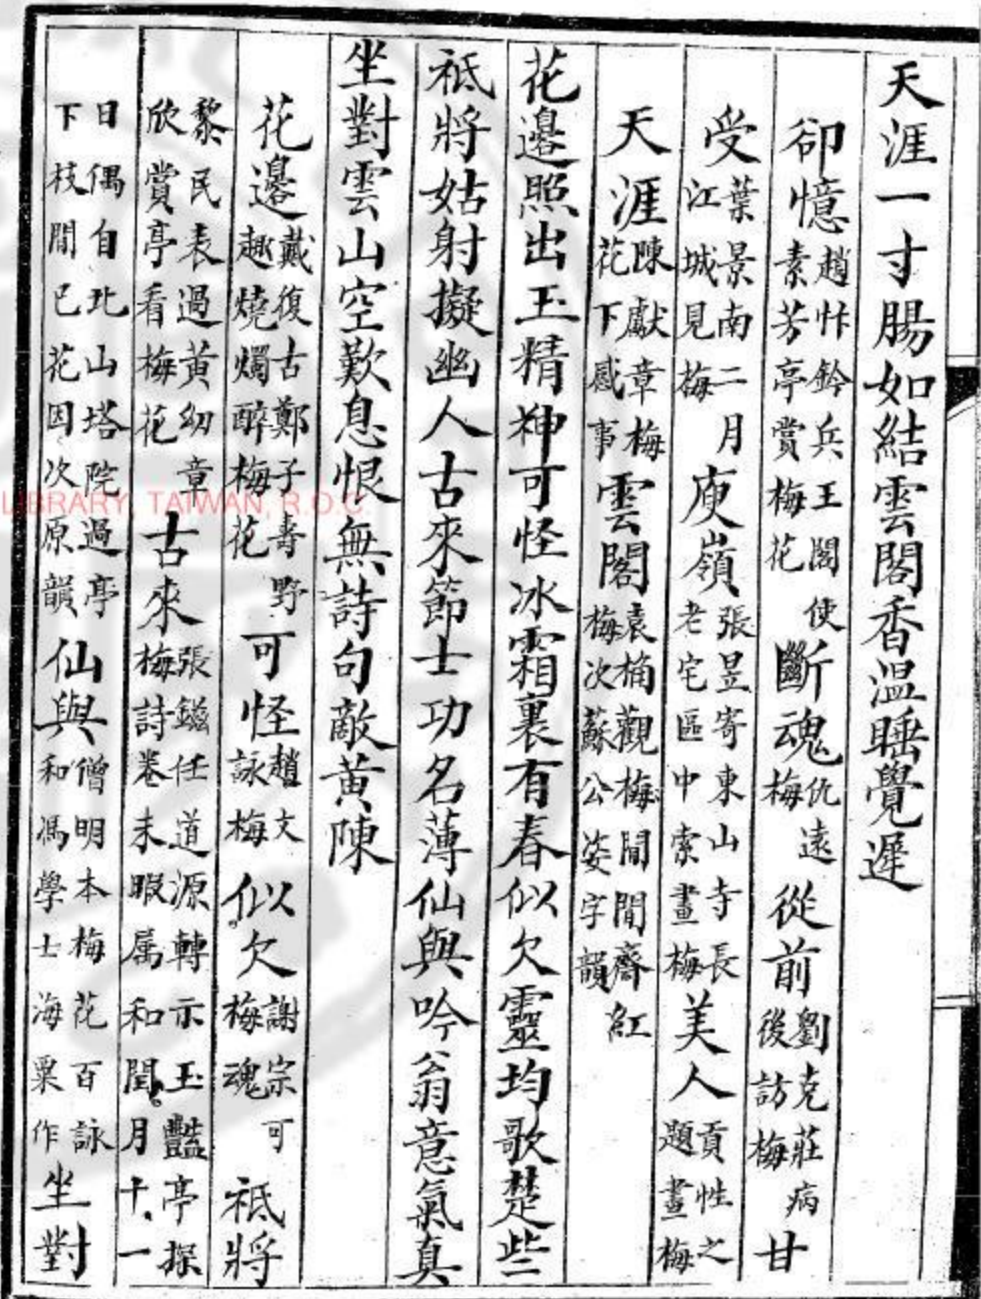 天涯一寸腸如結雲閣香温睡覺遲
卻憶趙忭鈐兵王閣使素芳亭賞梅花斷魂仇遠梅從前劉克莊病後訪梅甘
受葉景南二月江城見梅庾嶺張昱寄東山寺長老宅區中索畫梅美人貢性之題畫梅
天涯陳獻章梅花下感事雲閣袁桷觀梅閒閒齋紅梅次蘇公姿字韻
花邊照出玉精神可怪冰霜裏有春似欠靈均歌楚些
祗將姑射擬幽人古來節士功名薄仙與吟翁意氣真
坐對雲山空歎息恨無詩句敵黄陳
花邊戴復古鄭子壽野趣燒燭醉梅花可怪趙文詠梅似欠謝宗可梅魂祗將
黎民表過黄幼章欣賞亭看梅花古來張鎡任道源轉示玉豔亭探梅詩卷未暇属和閏月十一
日偶自北山塔院過亭下枝間已花因次原韻仙與僧明本梅花百詠和馮學士海粟作坐對
LIBRARY, TAIWAN, R.O.C.